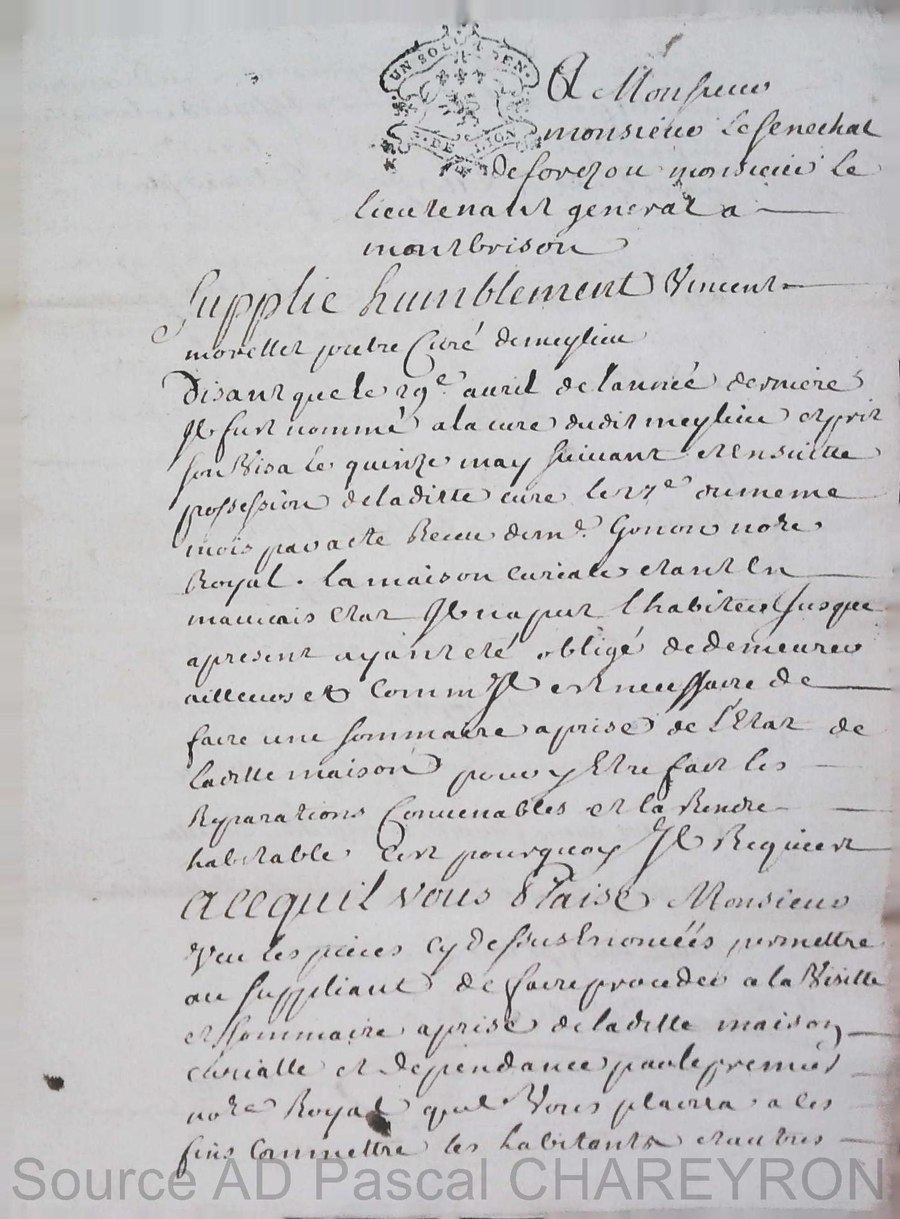 UN SOL LA FEN.
DE LION
A Monsieur
monsieur le senechal
de forez ou monsieur le
lieutenant general a
montbrison
Supplie humblement Vincent
morellet pretre Curé de meylieu
Disant que le 29e. avril de l'année derniere
Il fut nommé a la cure dudit meylieu et prit
son Visa le quinze may suivant et ensuitte
possession de laditte cure le 27e du meme
mois par acte Receu de me. Gonon nore
Royal. la maison curiale etant En
mauvais etat Il na put l'habiter Jusque
apresent ayant eté obligé de demeurer
ailleurs et Comme Il est necessaire de
faire une sommaire aprise de l'Etat de
laditte maison pour y Etre fait les
Reparations Convenables et la Rendre
habitable C'est pourquoy Il Requiert
A ce quil vous Plaise Monsieur
Veu les pieces cy dessus Enoncées permettre
au suppliant de faire proceder a la Visitte
et sommaire aprise de laditte maison
curialle et dependance par le premier
nore Royal quil Vous plaira a ces
fins Commettre les habitants et autres
Source AD Pascal CHAREYRON